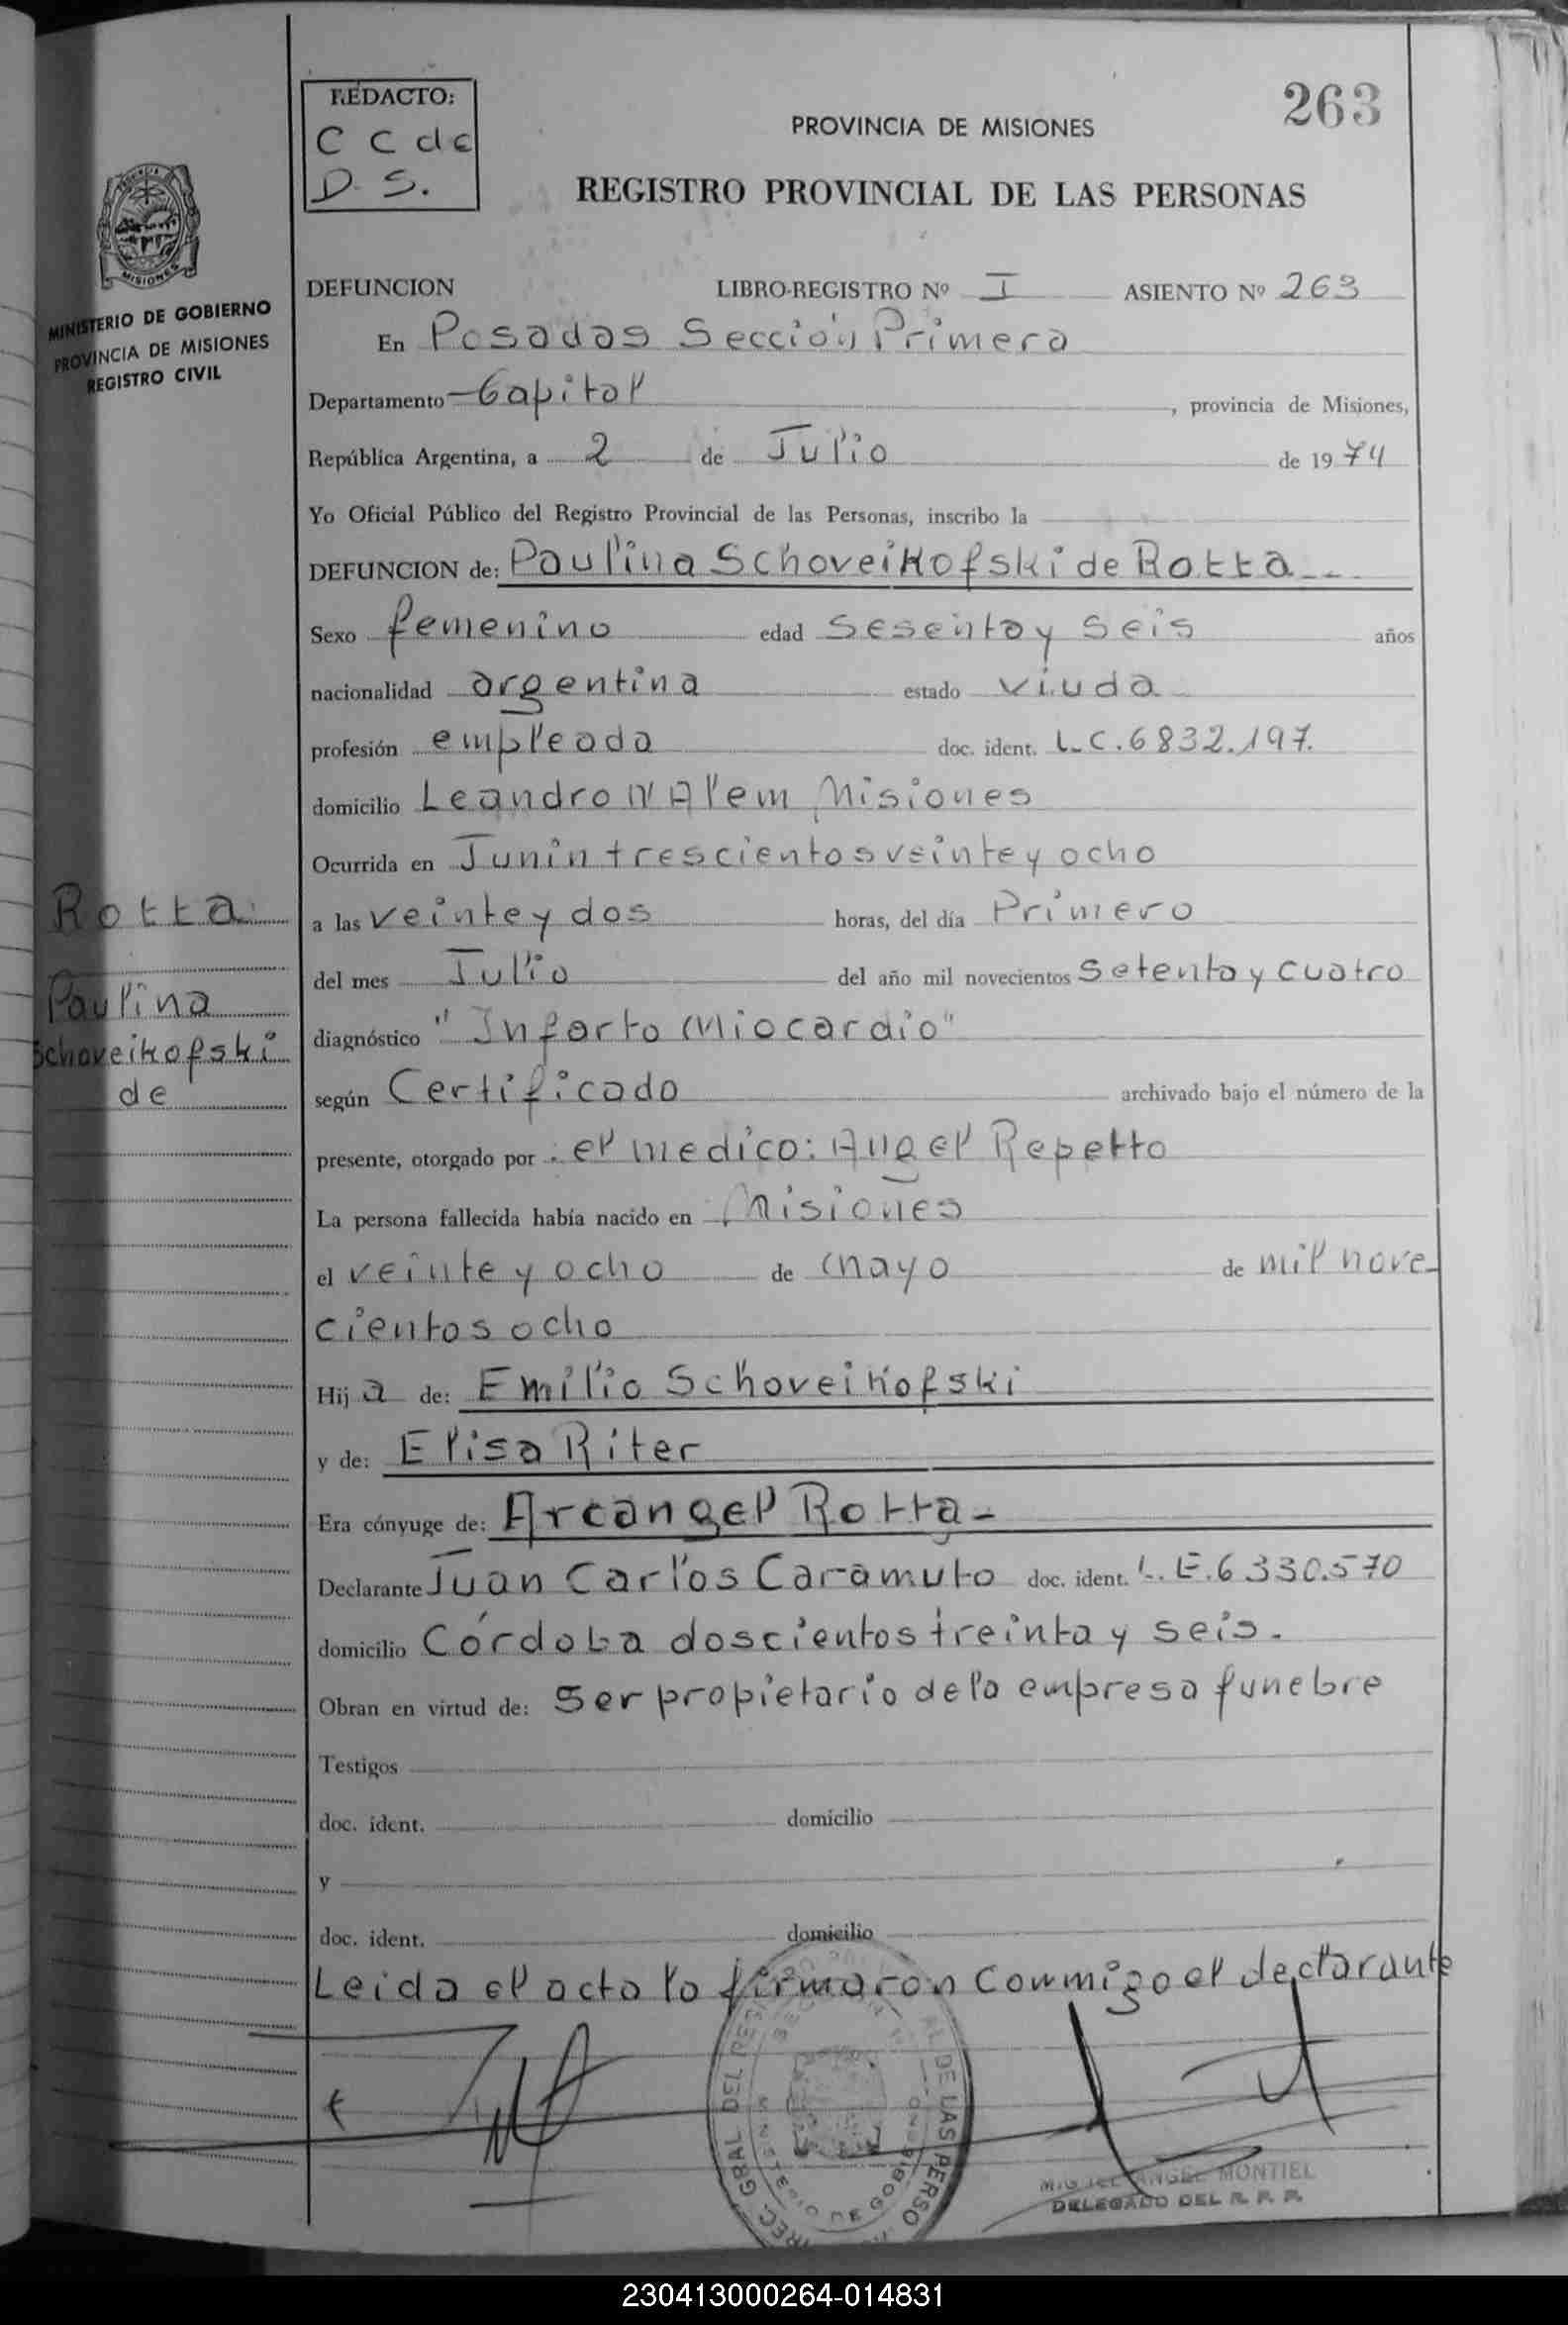 REDACTO:
C C de
D. S.
263
PROVINCIA DE MISIONES
REGISTRO PROVINCIAL DE LAS PERSONAS
MISIONES
MINISTERIO DE GOBIERNO
PROVINCIA DE MISIONES
REGISTRO CIVIL
DEFUNCION LIBRO-REGISTRO Nº I ASIENTO Nº 263
En Posadas Sección Primera
Departamento Capital, provincia de Misiones,
República Argentina, a 2 de Julio de 1974
Yo Oficial Público del Registro Provincial de las Personas, inscribo la
DEFUNCION de: Paulina Schoveikofski de Rotta
Sexo femenino edad sesenta y seis años
nacionalidad argentina estado viuda
profesión empleada doc. ident. L.C. 6832.197.
domicilio Leandro N Alem Misiones
Ocurrida en Junín trescientos veinte y ocho
a las veinte y dos horas, del día Primero
del mes Julio del año mil novecientos setenta y cuatro
diagnóstico "Infarto Miocardio"
según Certificado archivado bajo el número de la
presente, otorgado por : el medico: Angel Repetto
La persona fallecida había nacido en Misiones
el veinte y ocho de mayo de mil nove-
cientos ocho
Hija de: Emilio Schoveikofski
y de: Elisa Riter
Era cónyuge de: Arcangel Rotta -
Declarante Juan Carlos Caramuto doc. ident. L.E. 6330.570
domicilio Córdoba doscientos treinta y seis.
Obran en virtud de: ser propietario de la empresa funebre
Testigos
doc. ident. domicilio
y
doc. ident. domicilio
Leida el acta la firmaron conmigo el declarante
Rotta
Paulina
Schoveikofski
de
MIGUEL ANGEL MONTIEL
DELEGADO DEL R. P. P.
230413000264-014831